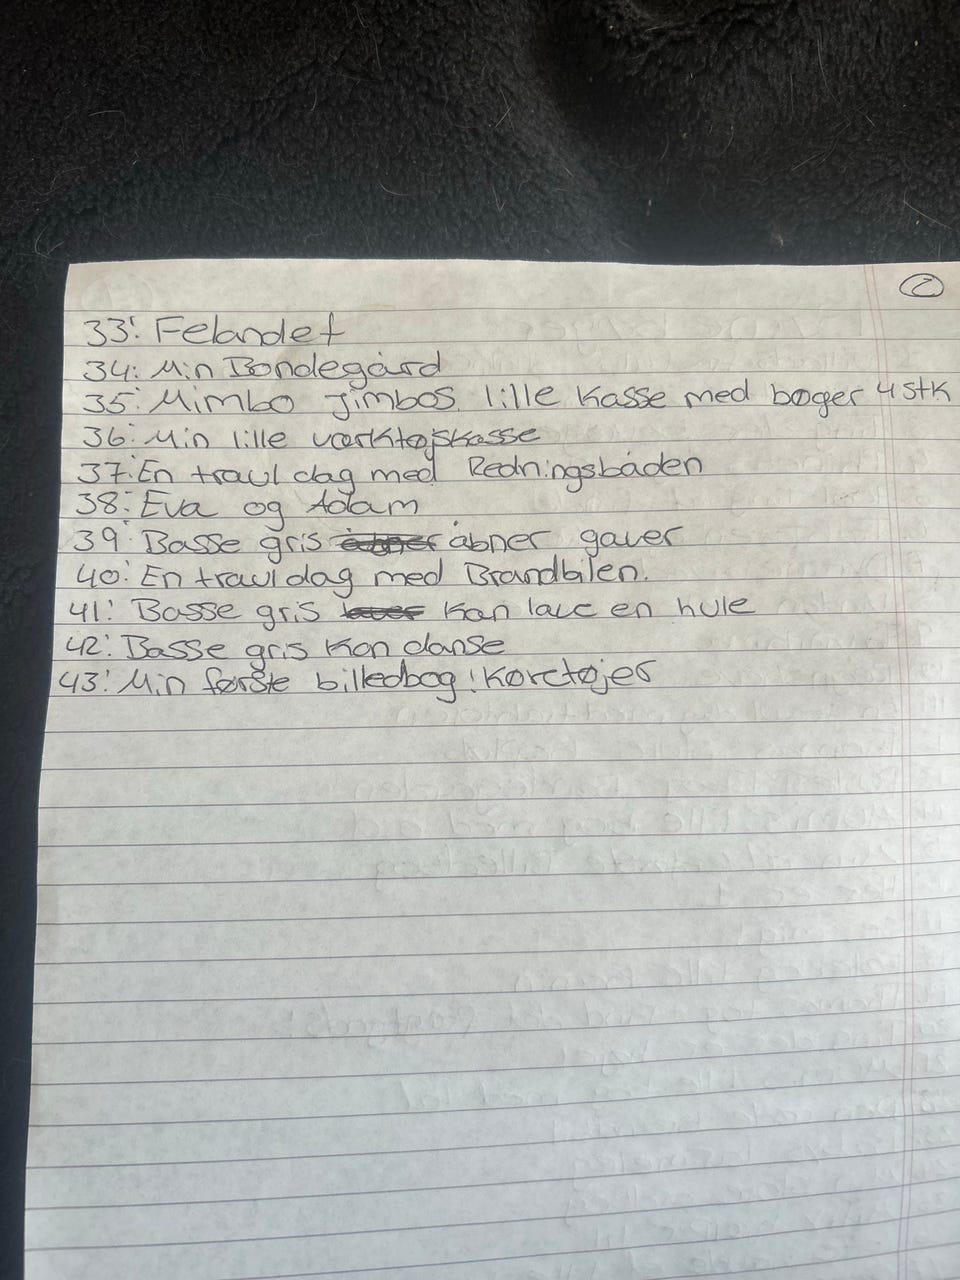 2
33: Felandet
34: Min Bondegård
35: Mimbo Jimbos lille kasse med bøger 4 stk
36: Min lille værktøjskasse
37: En travl dag med Redningsbåden
38: Eva og Adam
39: Basse gris åbner gaver
40: En travl dag med Brandbilen.
41: Basse gris kan lave en hule
42: Basse gris kan danse
43: Min første billedbog: Køretøjer